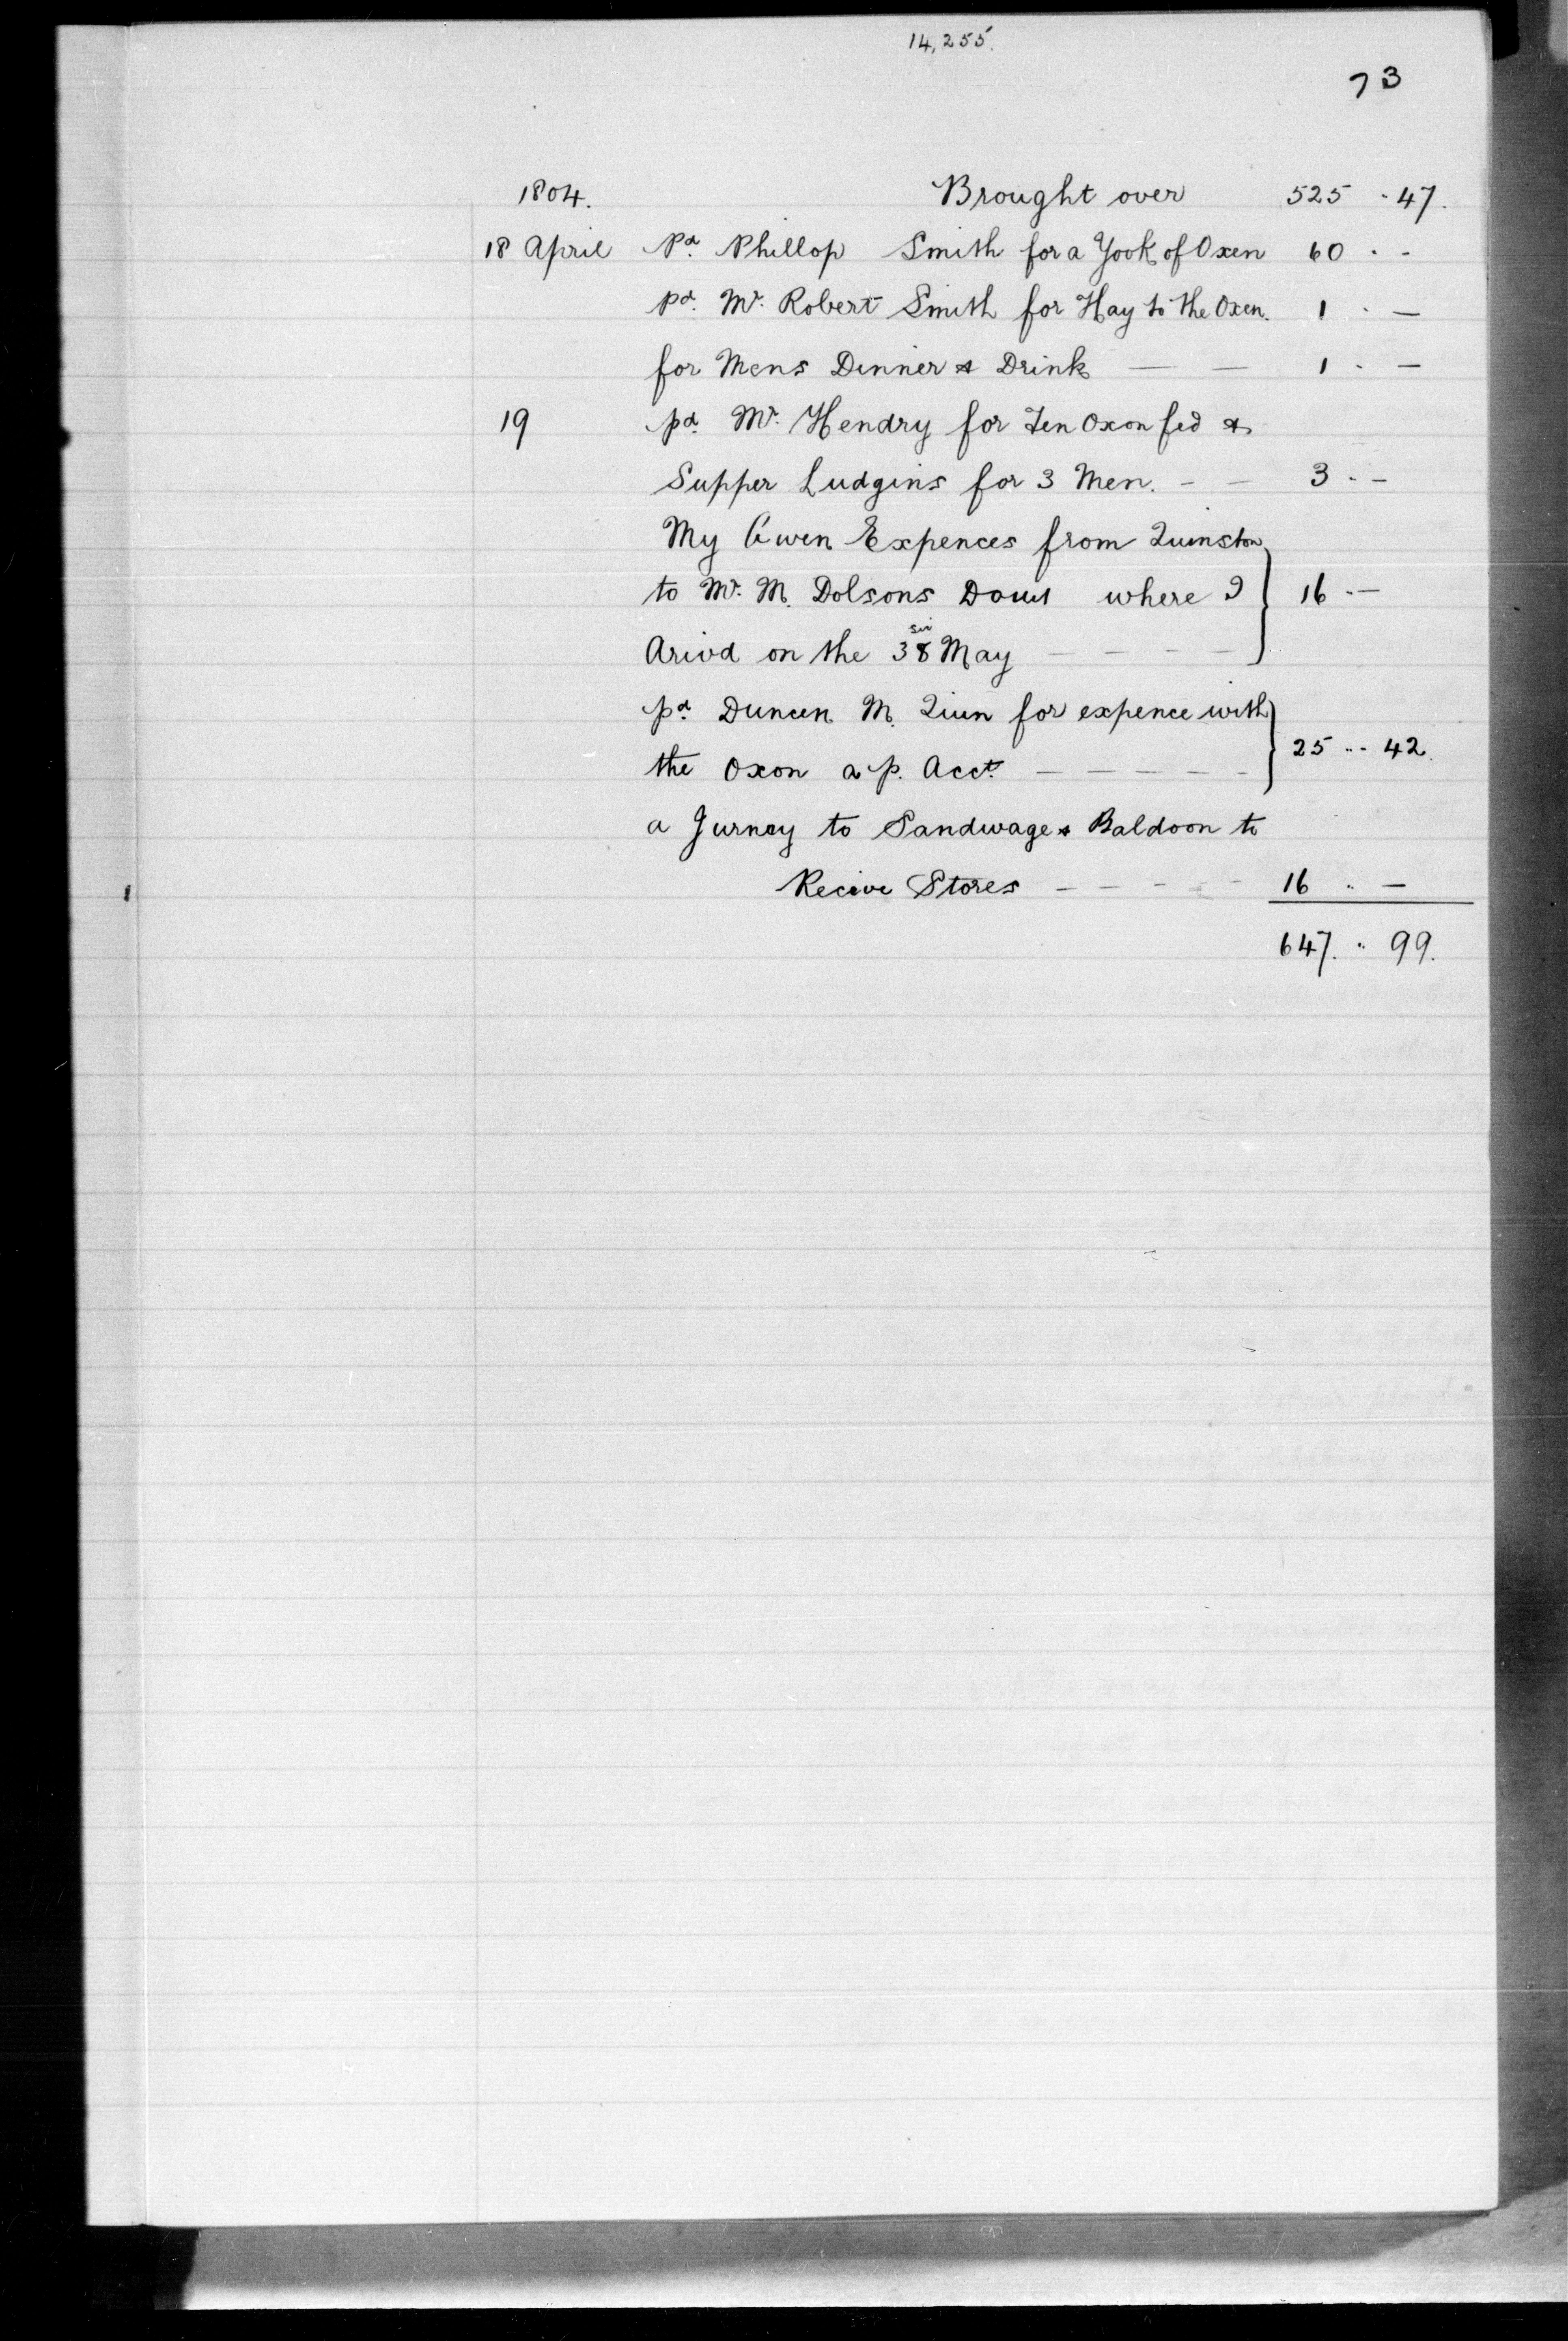 14,255.
73
1804. Brought over 525 .. 47.
18 April Pd. Phillop Smith for a Yook of Oxen 60 . -
pd. Mr. Robert Smith for Hay to the Oxen. 1 . —
for Mens Dinner & Drink — — 1 . —
19 pd. Mr. Hendry for Ten Oxon fed &
Supper Ludgins for 3 Men. - - 3 . -
My Owen Expences from Quinston
to Mr. M. Dolsons where I 16 . —
Arivd on the 38 May - - - -
sic
pd. Duncen M. Quin for expence with
the Oxon a p. Acct. - - - - - 25 .. 42.
a Jurney to Sandwage & Baldoon to
Recive Stores - - - - 16 .. —
647. .. 99.